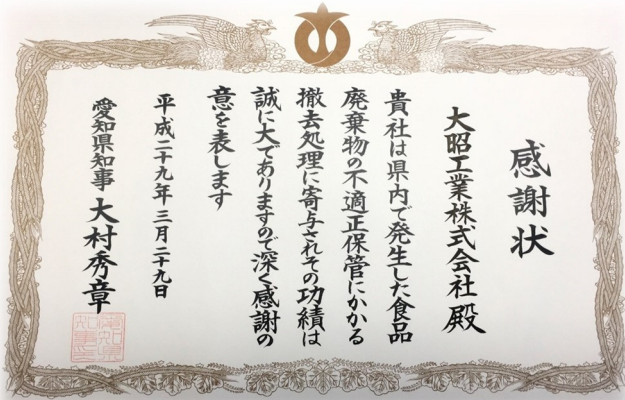 感謝状
大昭工業株式会社 殿
貴社は県内で発生した食品
廃棄物の不適正保管にかかる
撤去処理に寄与されその功績は
誠に大でありますので深く感謝の
意を表します
平成二十九年三月二十九日
愛知県知事 大村秀章
愛知県
知事之印